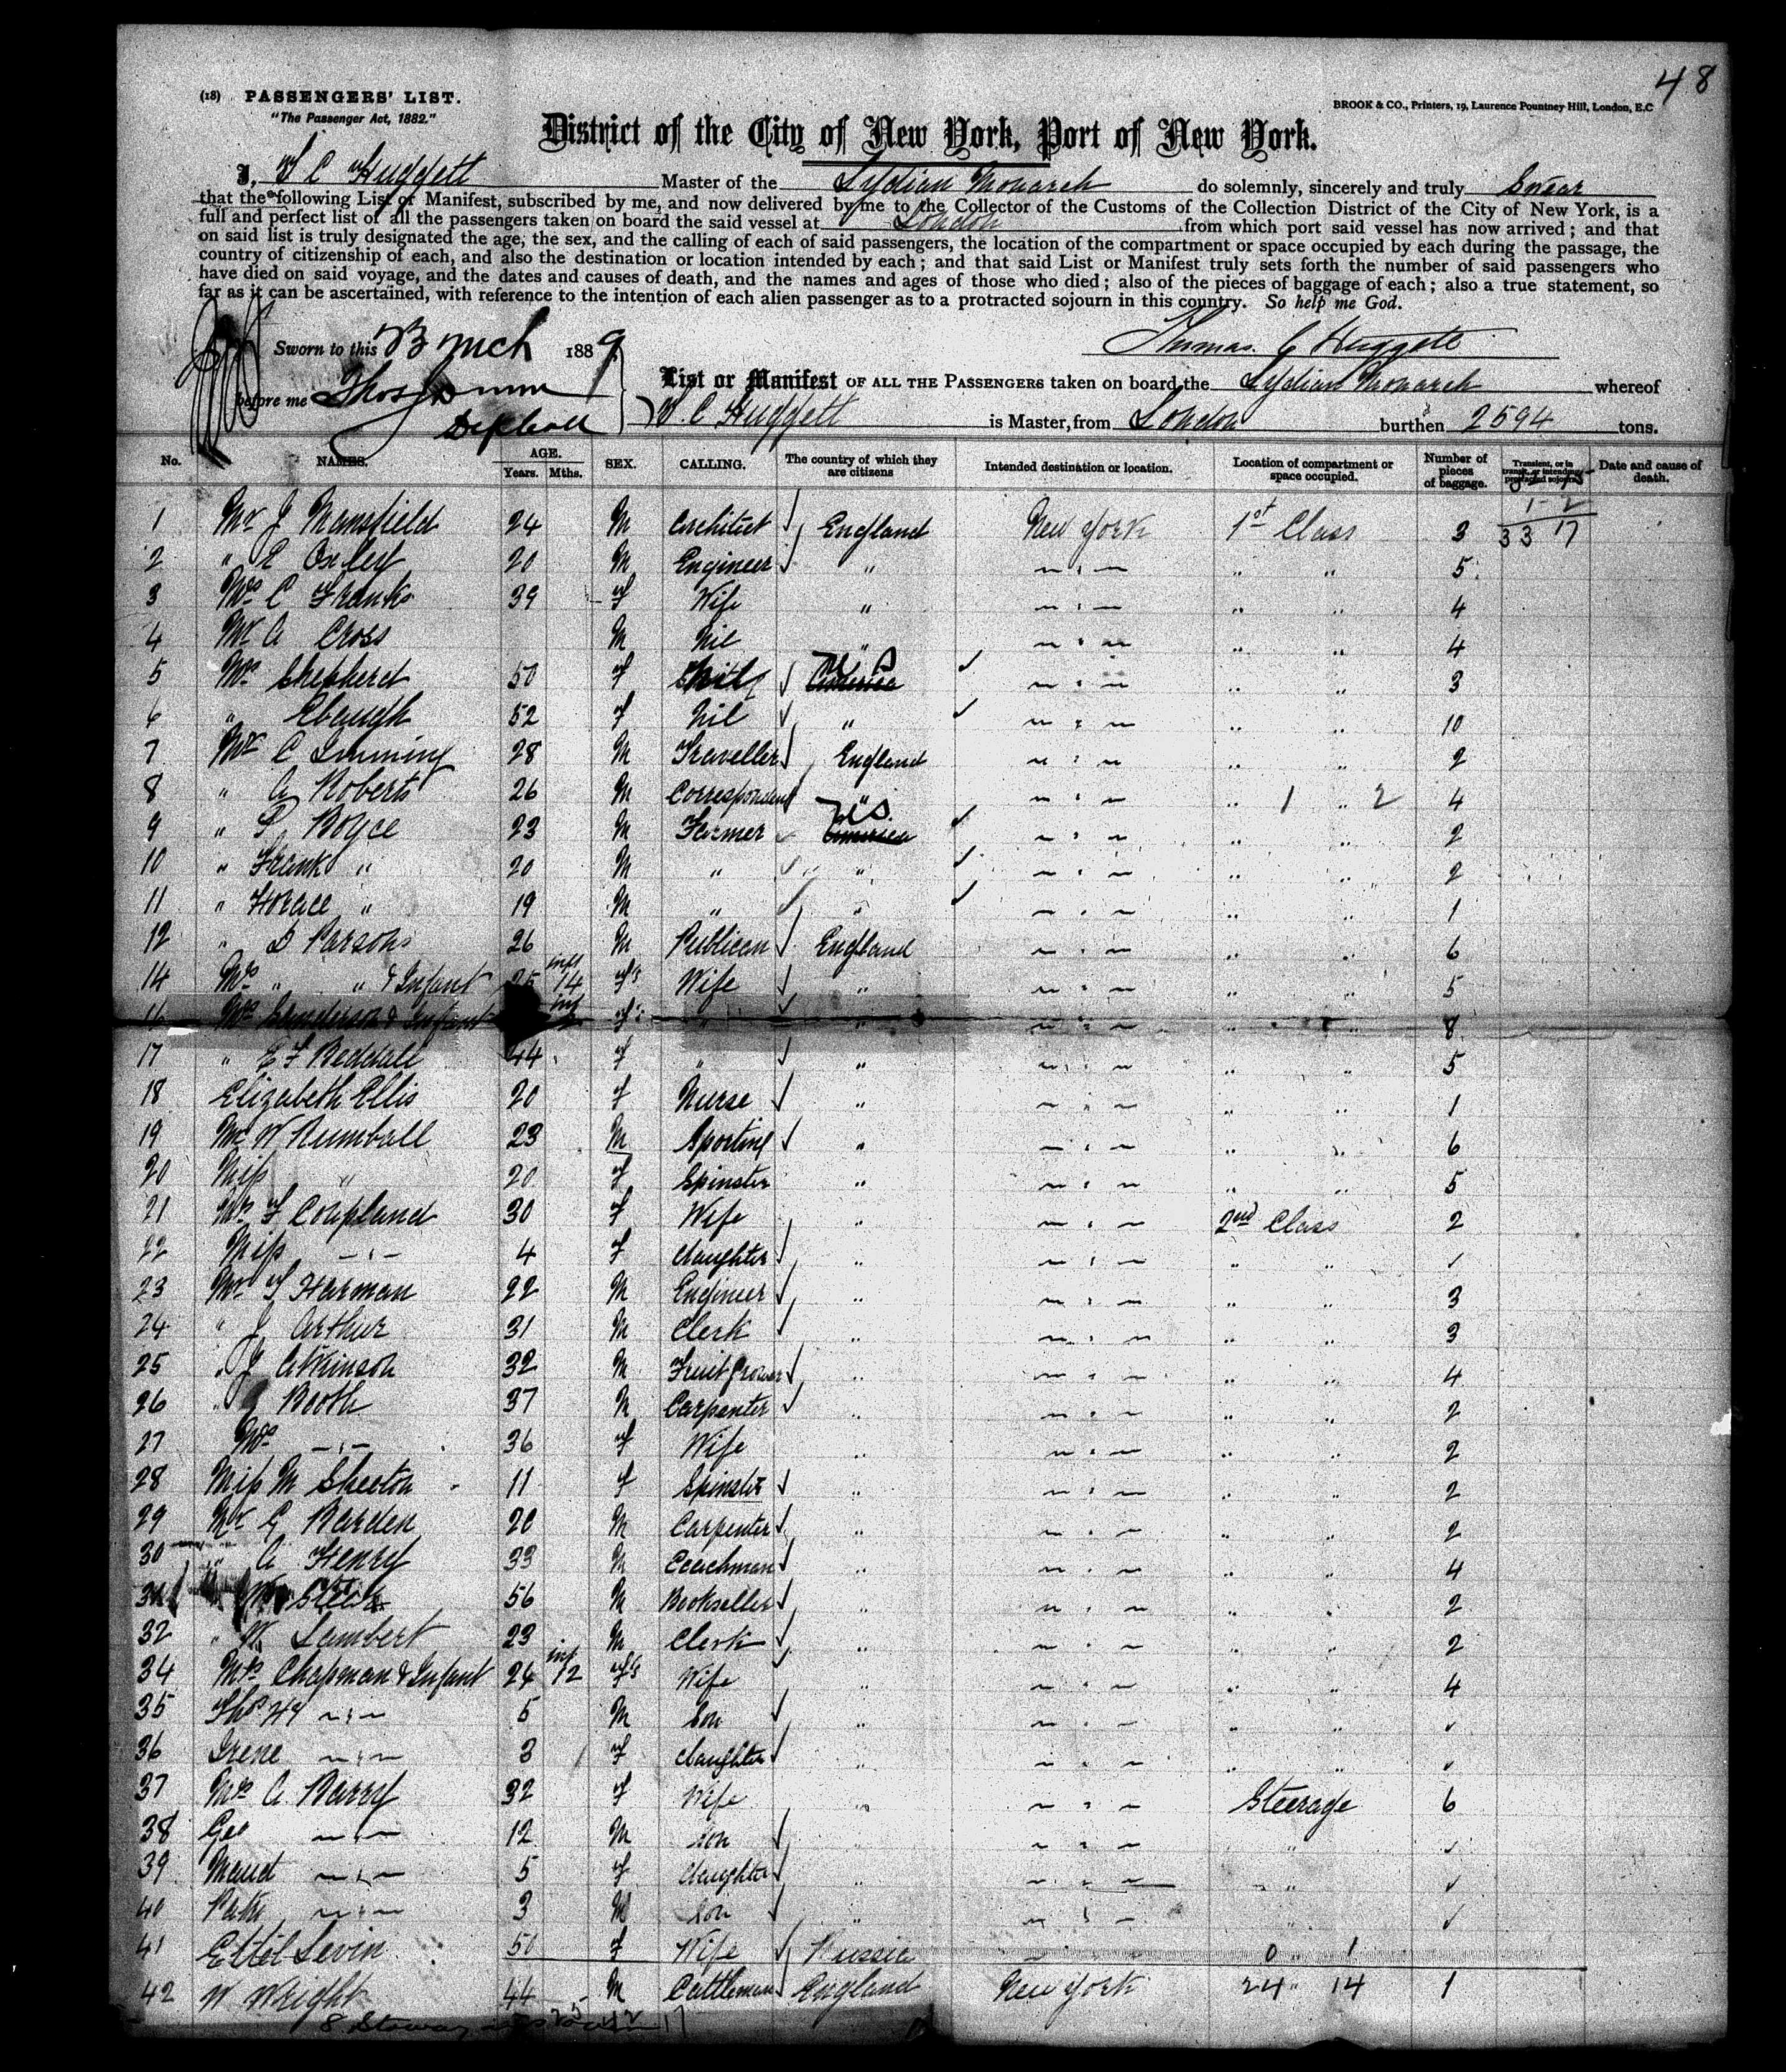 48
(18) PASSENGERS' LIST.
BROOK & CO., Printers, 19, Laurence Pountney Hill, London, E.C
"The Passenger Act, 1882."
District of the City of New York, Port of New York.
I, T C Huggett Master of the Lydian Monarch do solemnly, sincerely and truly Swear
that the following List or Manifest, subscribed by me, and now delivered by me to the Collector of the Customs of the Collection District of the City of New York, is a
full and perfect list of all the passengers taken on board the said vessel at London from which port said vessel has now arrived; and that
on said list is truly designated the age, the sex, and the calling of each of said passengers, the location of the compartment or space occupied by each during the passage, the
country of citizenship of each, and also the destination or location intended by each; and that said List or Manifest truly sets forth the number of said passengers who
have died on said voyage, and the dates and causes of death, and the names and ages of those who died; also of the pieces of baggage of each; also a true statement, so
far as it can be ascertained, with reference to the intention of each alien passenger as to a protracted sojourn in this country. So help me God.
Sworn to this 13 Mch 1889
Thomas C Huggett
before me Thos
List or Manifest OF ALL THE PASSENGERS taken on board the Lydian Monarch whereof
T. C Huggett is Master, from London burthen 2594 tons.
No. NAMES. AGE. Years. Mths. SEX. CALLING. The country of which they are citizens Intended destination or location. Location of compartment or space occupied. Number of pieces of baggage. Transient, or in transit, or intending protracted sojourn. Date and cause of death.
1 Mr J Mansfield 24 M Architect England New York 1st Class 3 33 17
2 " E Oxley 20 M Engineer " " " " 5
3 Mrs C Franks 39 F Wife " " " " 4
4 Mr A Cross M Nil " " " " 4
5 Mrs Shepherd 50 F Nil U S " " " 3
6 " Ebaugh 52 F Nil " " " " 10
7 Mr C Imming 28 M Traveller England " " " 2
8 " A Roberts 26 M Correspondent " " " 1 " 2 4
9 " P Boyce 23 M Farmer U S. " " " 2
10 " Frank " 20 M " " " " " 2
11 " Horace " 19 M " " " " " 1
12 " D Parsons 26 M Publican England " " " 6
14 Mrs " " & Infant 25 inf 14 Fs Wife " " " " 5
16 Mrs Sanderson & Infant inf F " " " " " 8
17 " E F Beddall 44 F " " " " " 5
18 Elizabeth Ellis 20 F Nurse " " " " 1
19 Mr W Rumball 23 M Sporting " " " " 6
20 Miss " 20 F Spinster " " " " 5
21 Mrs F Coupland 30 F Wife " " 2nd Class 2
22 Miss " 4 F daughter " " " " ✓
23 Mr T Harman 22 M Engineer " " " " 3
24 " J Arthur 31 M Clerk " " " " 3
25 " J Atkinson 32 M Fruit Grower " " " " 4
26 " Booth 37 M Carpenter " " " " 2
27 Mrs " 36 F Wife " " " " 2
28 Miss M Skeeton 11 F Spinster " " " " 2
29 Mr G Barden 20 M Carpenter " " " " 2
30 " A Henry 33 M Coachman " " " " 4
31 56 M Bookseller " " " " 2
32 " W Lambert 23 M Clerk " " " " 2
34 Mrs Chapman & Infant 24 inf 12 Fs Wife " " " " 4
35 Thos Hy " 5 M Son " " " " ✓
36 Irene " 3 F daughter " " " " ✓
37 Mrs A Barry 32 F Wife " " Steerage 6
38 Geo " 12 M son " " " ✓
39 Maud " 5 F daughter " " " ✓
40 " 3 M Son " " " ✓
41 Ettel Levin 50 F Wife Russia 0 1
42 W Wright 44 M Cattleman England New York 24 14 1